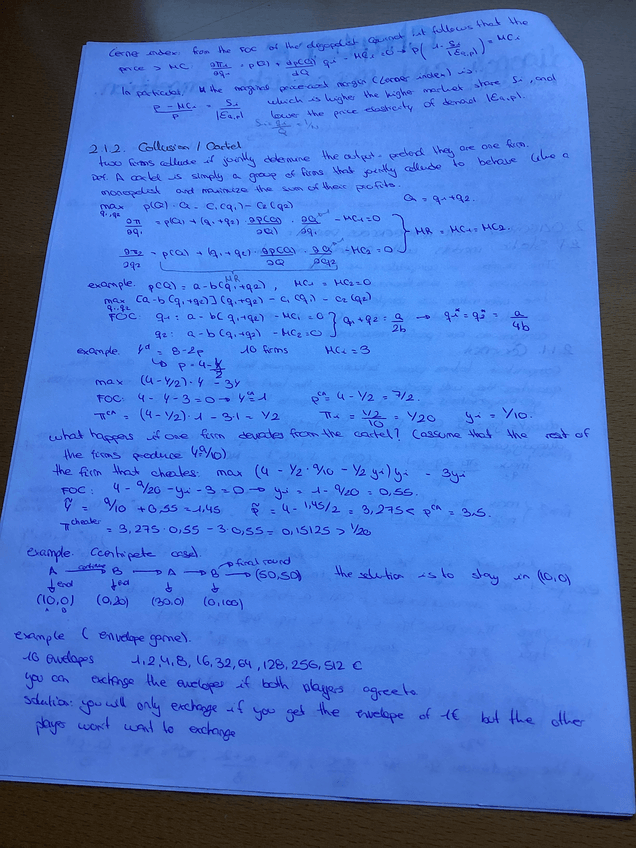 Lerner index: from the FOC of the oligopolist Cournot it follows that the
price > MC. ∂πi/∂qi = p(Q) + ∂p(Q)/∂Q qi - MCi = 0 → p(1 - Si/|εQ,p|) = MCi
In particular, the marginal price-cost margin (Lerner index) is:
p - MCi/p = Si/|εQ,p| which is higher the higher market share Si, and
lower the price elasticity of demand |εQ,p|.
Si = qi/Q = 1/n
2.1.2. Collusion / Cartel
two firms collude if jointly determine the output - pretend they are one firm.
Def. A cartel is simply a group of firms that jointly collude to behave like a
monopolist and maximize the sum of their profits.
max q1,q2 p(Q)·Q - C1(q1) - C2(q2) Q = q1+q2.
∂π/∂q1 = p(Q) + (q1+q2) · ∂p(Q)/∂Q · ∂Q/∂q1 - MC1 = 0 } MR = MC1 = MC2.
∂π2/∂q2 = p(Q) + (q1+q2) · ∂p(Q)/∂Q · ∂Q/∂q2 - MC2 = 0
MR
example. p(Q) = a - b(q1+q2), MC1 = MC2 = 0
max q1,q2 [a - b(q1+q2)](q1+q2) - C1(q1) - C2(q2)
FOC q1: a - b(q1+q2) - MC1 = 0 } q1+q2 = a/2b → q1* = q2* = a/4b
q2: a - b(q1+q2) - MC2 = 0
example. Yd = 8-2p 10 firms MCi = 3
↳ p = 4 - Y/2
max (4-Y/2)·Y - 3Y
FOC: 4 - Y - 3 = 0 → Yca = 1 pca = 4 - 1/2 = 7/2.
πca = (4-1/2)·1 - 3·1 = 1/2 πi = 1/2/10 = 1/20 yi = 1/10.
what happens if one firm deviates from the cartel? (assume that the rest of
the firms produce 9/10)
the firm that cheats: max (4 - 1/2 · 9/10 - 1/2 yi) yi - 3yi
FOC: 4 - 9/20 - yi - 3 = 0 → yi = 1 - 9/20 = 0,55.
Ỹ = 9/10 + 0,55 = 1,45 p̃ = 4 - 1,45/2 = 3,275 < pca = 3,5.
πcheater = 3,275 · 0,55 - 3·0,55 = 0,15125 > 1/20
example. (centipete case).
A continue → B → A → B → final round (50,50) the solution is to stay in (10,0)
↓ end ↓ end ↓ ↓
(10,0) (0,20) (30,0) (0,100)
A B
example (envelope game).
10 envelopes 1,2,4,8, 16,32,64, 128, 256, 512 €
you can exchange the envelopes if both players agree to
solution: you will only exchange if you get the envelope of 1€ but the other
player won't want to exchange